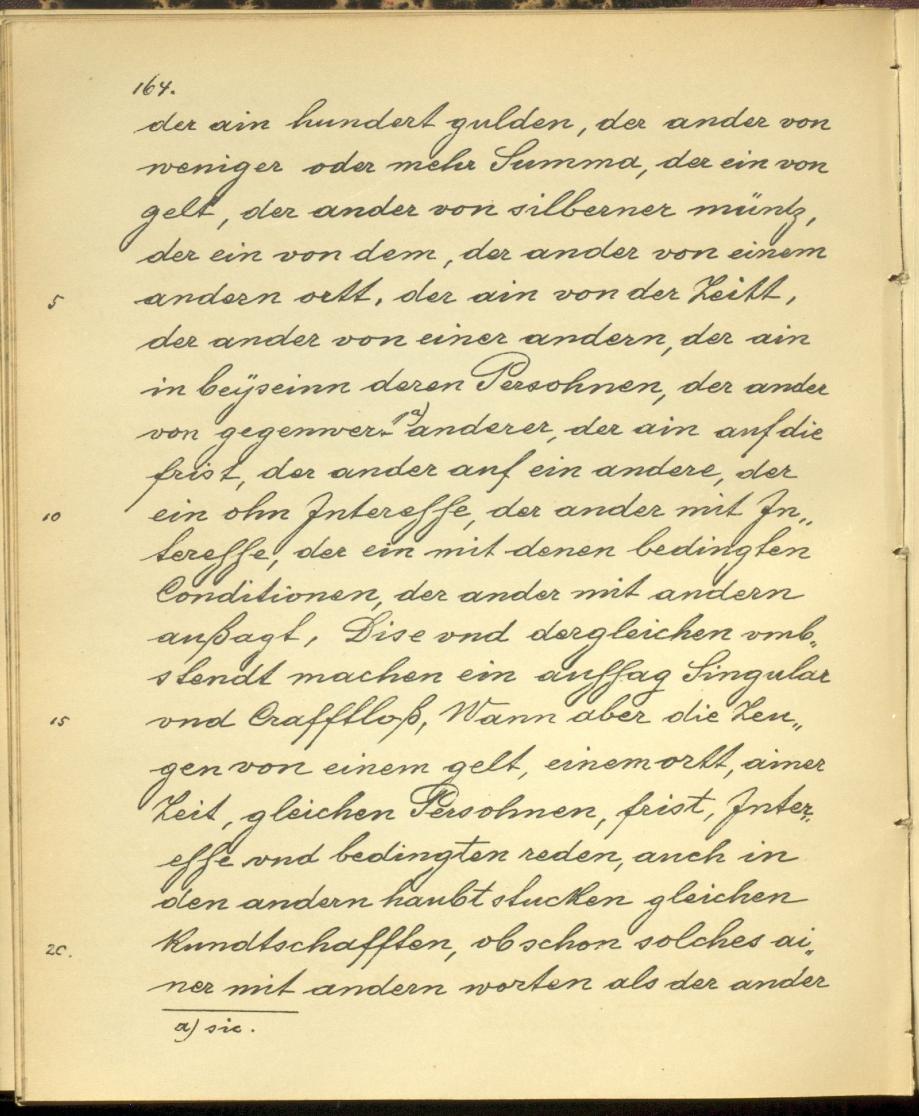 164.
der ain hundert gulden, der ander von
weniger oder mehr Summa, der ein von
gelt, der ander von silberner müntz,
der ein von dem, der ander von einem
5 andern ortt, der ain von der Zeitt,
der ander von einer andern, der ain
in beÿseinn deren Persohnen, der ander
von gegenwer- a) anderer, der ain auf die
frist, der ander auf ein andere, der
10 ein ohn Interesse, der ander mit In„
teresse, der ein mit denen bedingten
Conditionen, der ander mit andern
außagt, Dise vnd dergleichen vmb„
stendt machen ein aussag Singular
15 vnd Crafftloß, Wann aber die Zeu„
gen von einem gelt, einem ortt, ainer
Zeit, gleichen Persohnen, frist, Inter„
esse vnd bedingten reden, auch in
den andern haubtstucken gleichen
20. Kundtschafften, obschon solches ai„
ner mit andern worten als der ander
a) sic.